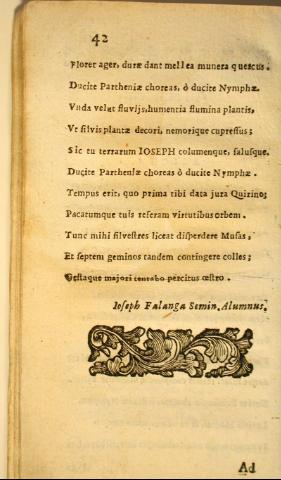 42
Floret ager, duræ dant mellea munera quercus.
Ducite Partheniæ choreas, ò ducite Nymphæ.
Vnda velut fluvijs, humentia flumina plantis,
Vt silvis plantæ decori, nemorique cupressus;
Sic tu terrarum IOSEPH columenque, salusque.
Ducite Partheniæ choreas ò ducite Nymphæ.
Tempus erit, quo prima tibi data jura Quirino;
Pacatumque tuis referam virtutibus orbem.
Tunc mihi silvestres liceat disperdere Musas,
Et septem geminos tandem contingere colles;
Gestaque majori tentabo percitus œstro.
Ioseph Falanga Semin. Alumnus.
Ad